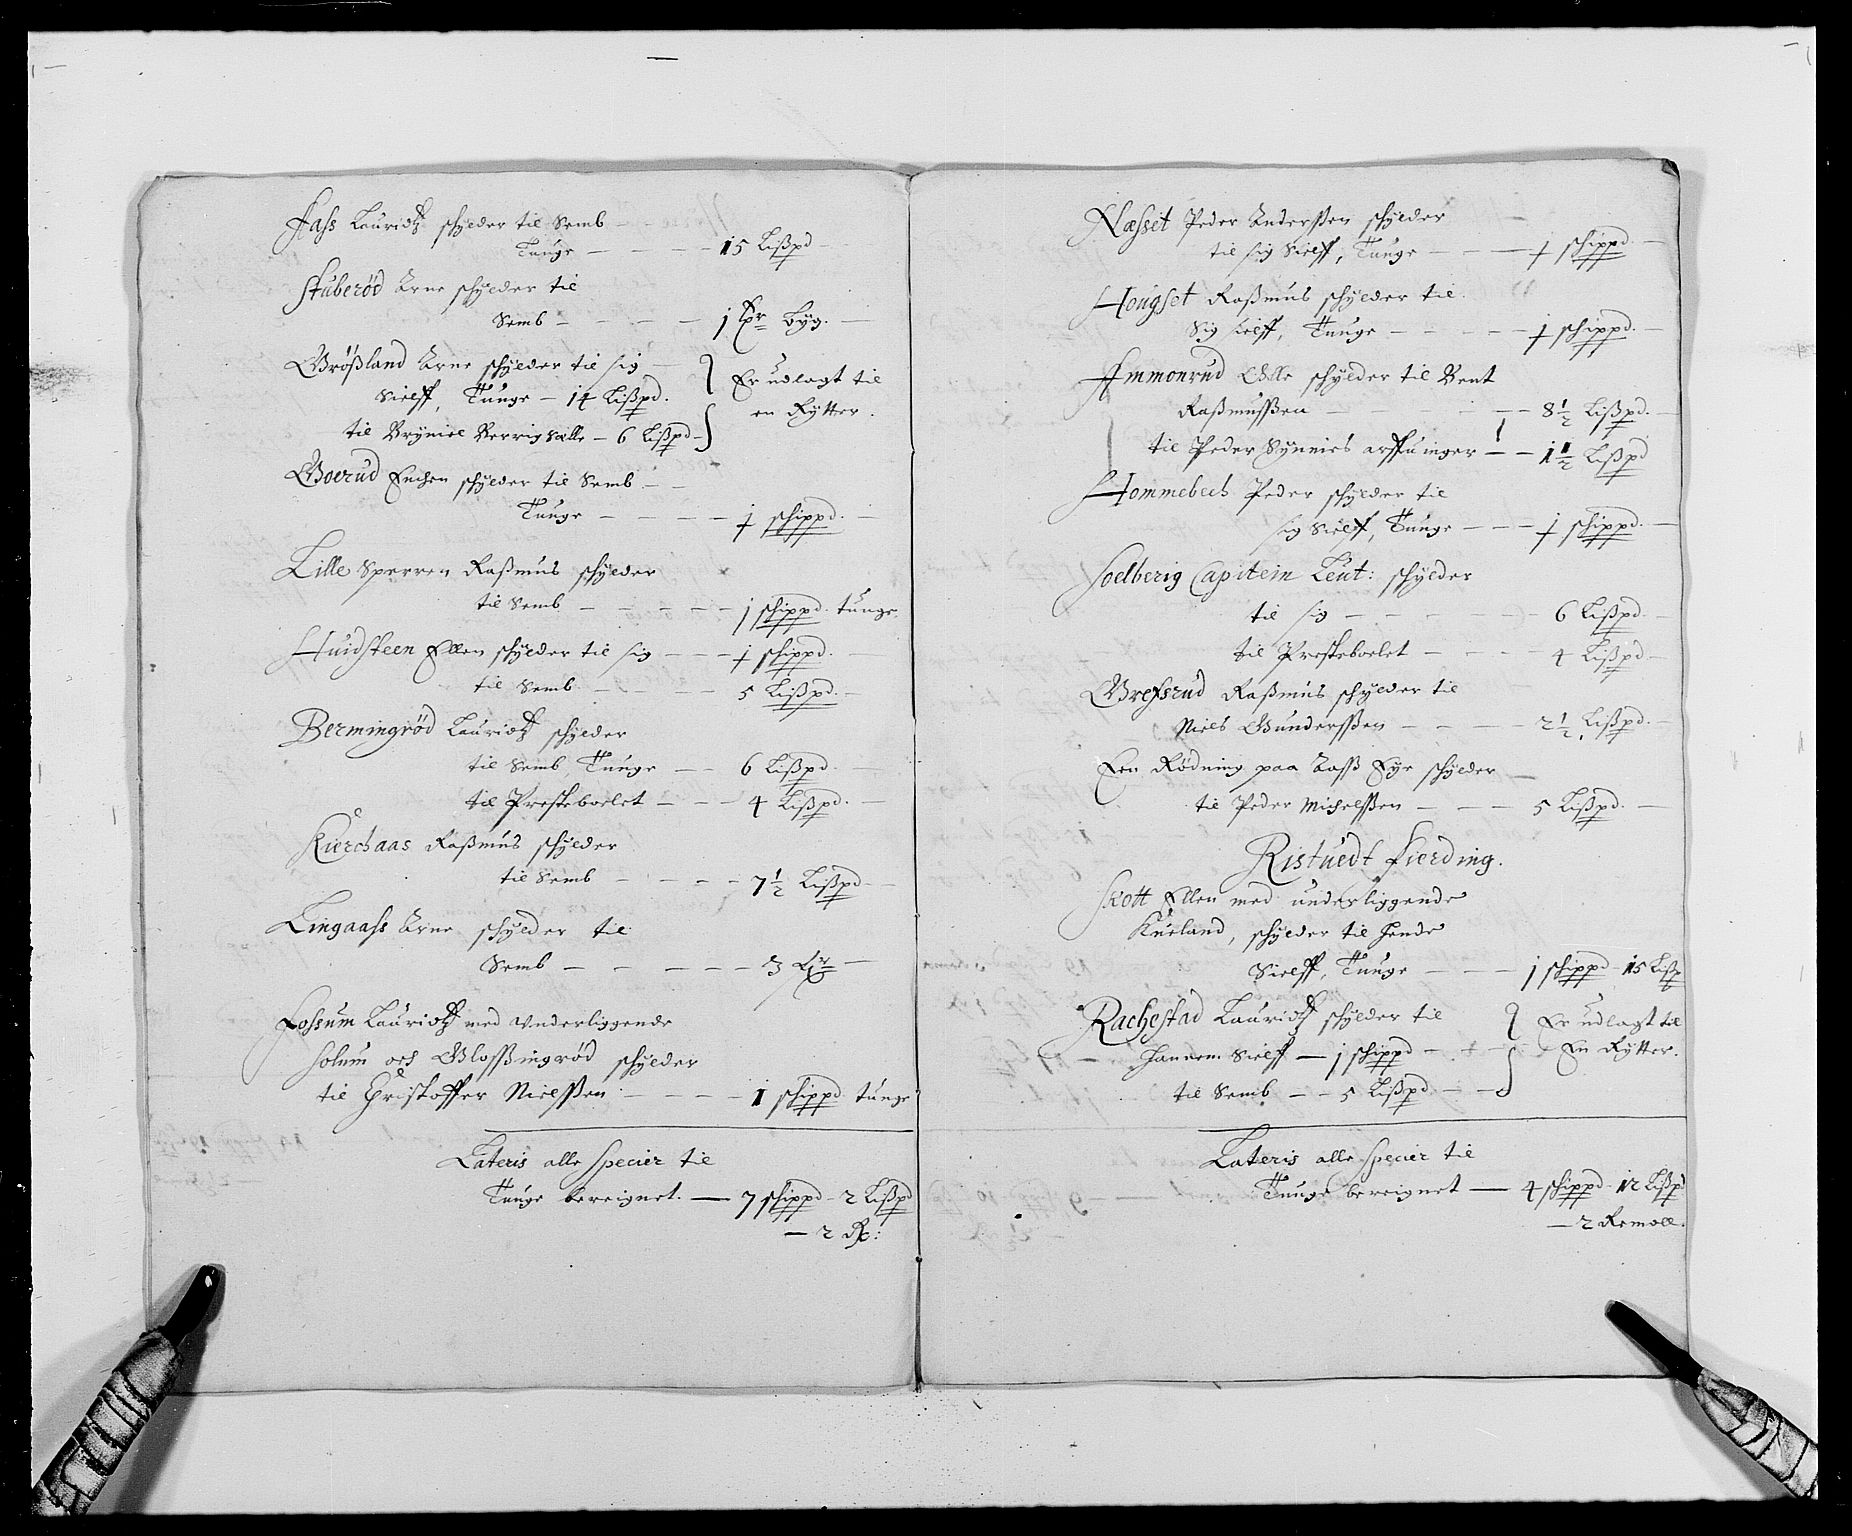 Fass Lauridtz schylder til Semb
Tunge 15 Lißpd
Stuberød Arne schylder til
Semb 1 Byg.
Grøßland Arne schylder til sig
Sielff, Tunge 14 Lißpd.
til Bryniel 6 Lißpd
Er udlagt til
en Rytter.
Goerud Enchen schylder til Semb
Tunge 1 schippd.
Lille Sperren Raßmus schylder
til Semb 1 schippd. tunge
Huidsteen Ellen schylder til sig 1 schippd.
til Semb 5 Lißpd.
Bermingrød Lauridtz schylder
til Semb, Tunge 6 Lißpd.
til Presteboelet 4 Lißpd.
Kierchaas Raßmus schylder
til Semb 7½ Lißpd
Lingaass Arne schylder til
Semb 3
Fossum Lauridtz med Underliggende
Solum och Glossingrød schylder
til Christoffer Nielßen 1 schippd tunge
Lateris alle Specier til
Tunge bereignet. 7 schippd 2 Lißpd
2 Rx:
Næsset Peder Anderßen schylder
til sig Sielff, Tunge 1 schippd
Hougset Raßmus schylder til
Sig sielff, Tunge 1 schippd.
Ammonrud Olle schylder til Bent
Raßmußen 8½ Lißpd.
til Peder Synnies arffuinger 1½ Lißpd
Hommebech Peder schylder til
sig Sielff, Tunge 1 schippd.
Soelberig Capitein Leut: schylder
til sig 6 Lißpd.
til Presteboelet 4 Lißpd
Grefsrud Raßmus schylder til
Niels Gunderßen 2½ Lißpd.
Een Rødning paa Eye schylder
til Peder Michelßen 5 Lißpd.
Ristuedt Fierding.
Skott Ellen med underliggende
Kueland, schylder til hende
Sielff, Tunge 1 schippd 15 Lißp
Rachestad Lauridtz schylder til
hannem Sielff 1 schippd
til Semb 5 Lißpd
Er udlagt til
En Rytter.
Lateris alle Specier til
Tunge bereignet 4 schippd 12 Lißpd
2 Remoll.